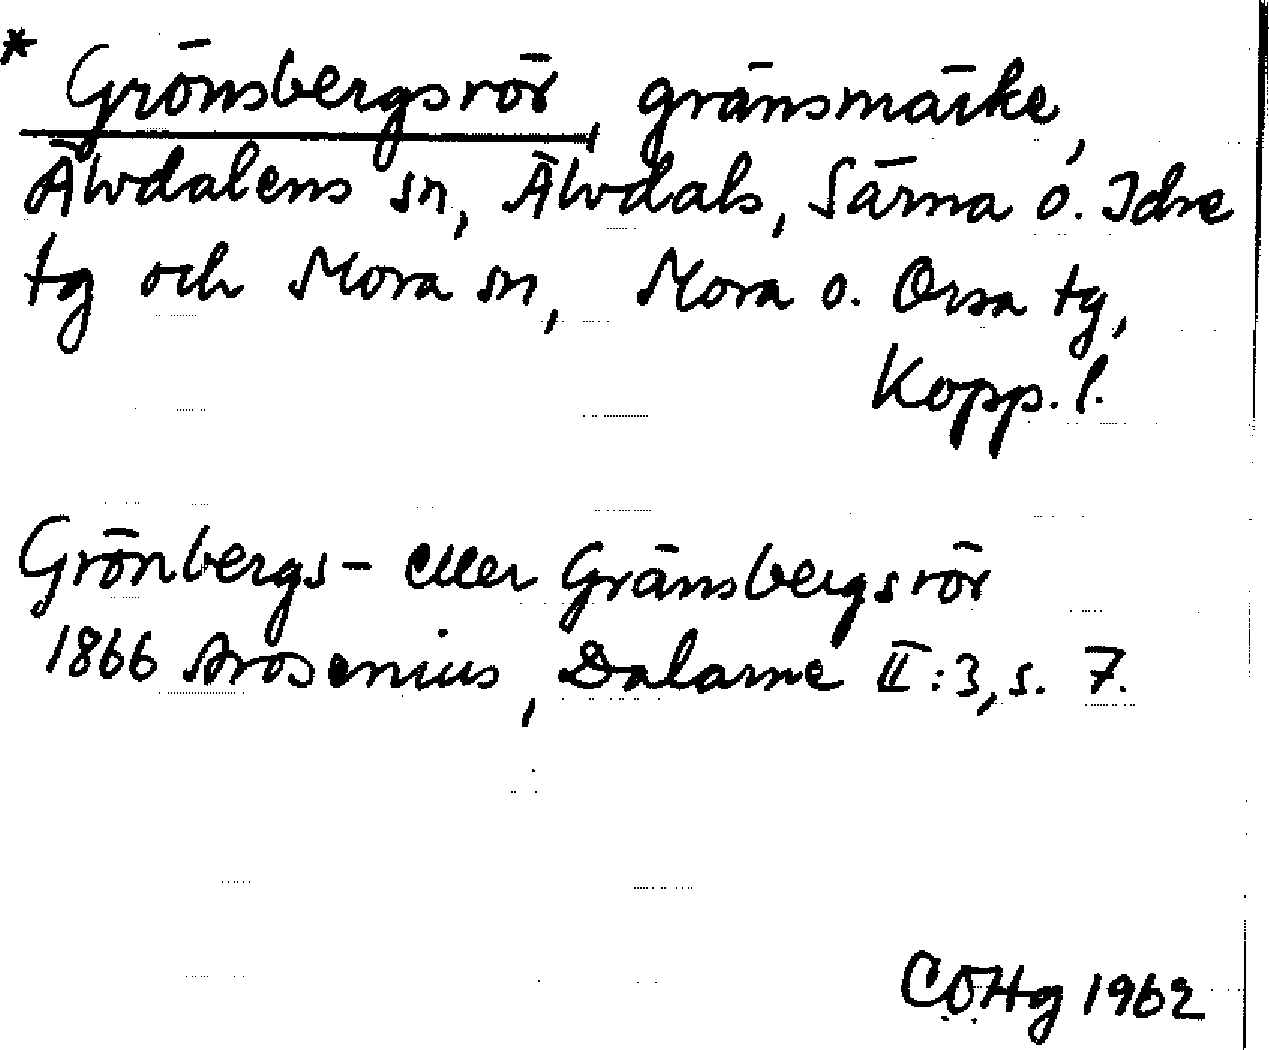 * Grönsbergsrör, gränsmärke,
Älvdalens sn, Älvdals, Särna o. Idre
tg och Mora sn, Mora o. Orsa tg,
Kopp. l.
Grönbergs- eller Gränsbergsrör
1866 Arosenius, Dalarne II:3, s. 7.
COHg 1962